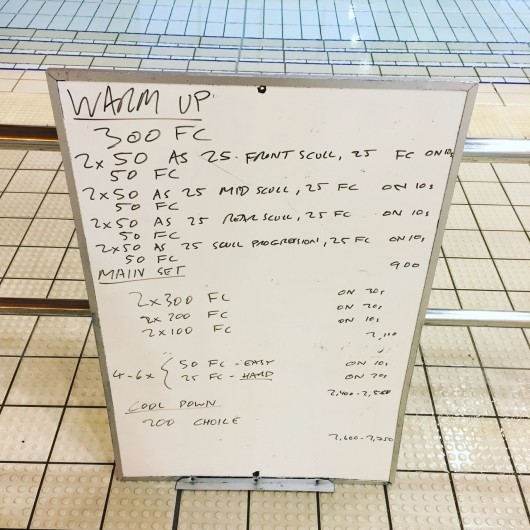 WARM UP
300 FC
2x50 AS 25 FRONT SCULL, 25 FC ON 10s
50 FC
2x50 AS 25 MID SCULL, 25 FC ON 10s
50 FC
2x50 AS 25 REAR SCULL, 25 FC ON 10s
50 FC
2x50 AS 25 SCULL PROGRESSION, 25 FC ON 10s
50 FC
900
MAIN SET
2x300 FC ON 20s
2x200 FC ON 20s
2x100 FC ON 10s
2,100
4-6x { 50 FC - EASY ON 10s
25 FC - HARD ON 20s
COOL DOWN
200 CHOICE